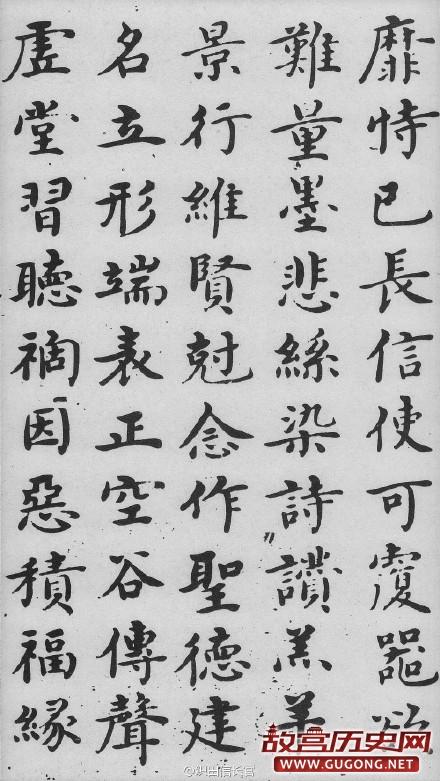 靡恃已長信使可覆器欲
難量墨悲絲染詩讃羔羊
景行維賢尅念作聖德建
名立形端表正空谷傳聲
虛堂習聽禍因惡積福緣
故宫历史网
WWW.GUGONG.NET